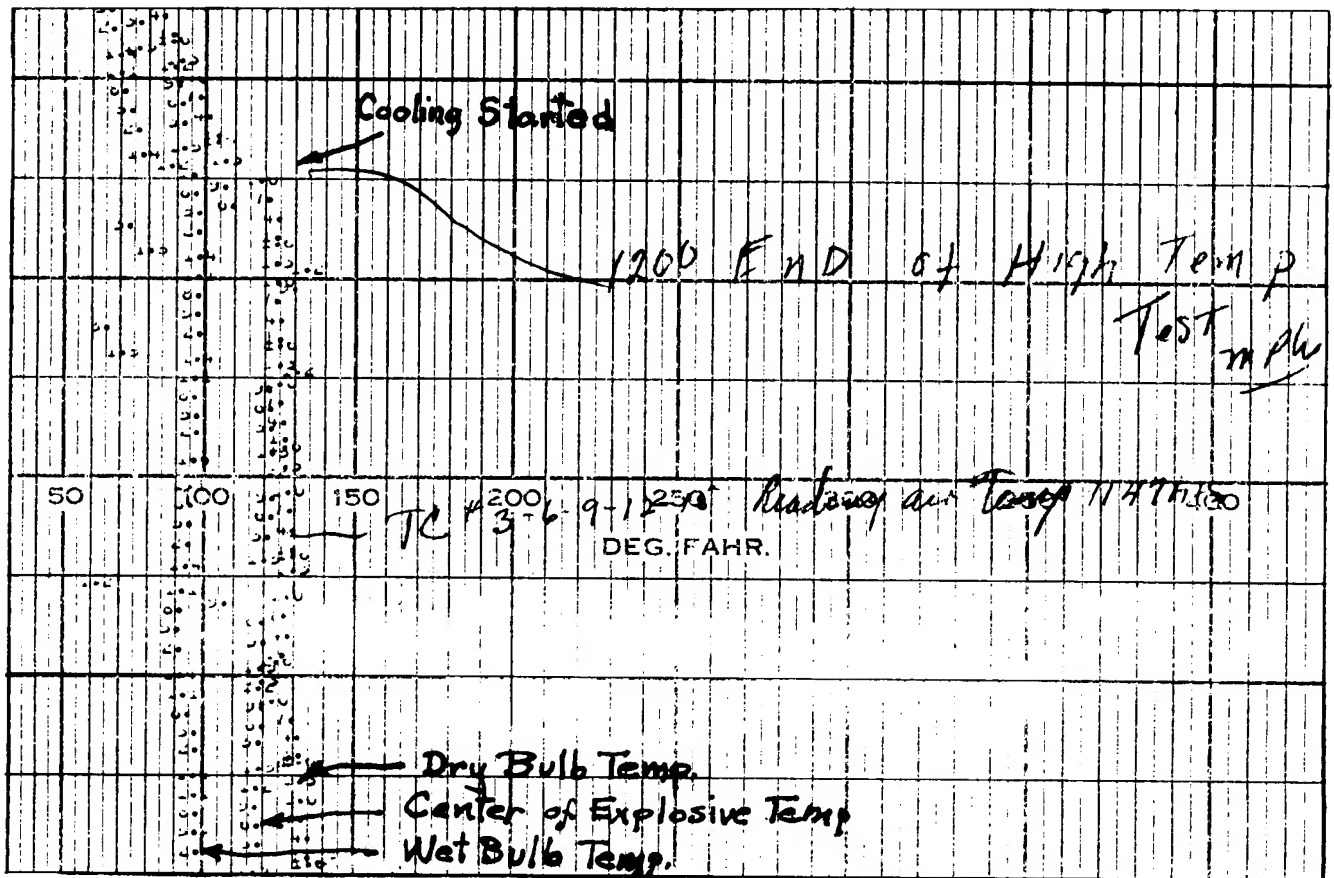 Cooling Started
1200 End of High Temp
Test
50 100 150 200 250
TC # 3-6-9-12 Reading air Temp
DEG. FAHR.
Dry Bulb Temp.
Center of Explosive Temp
Wet Bulb Temp.